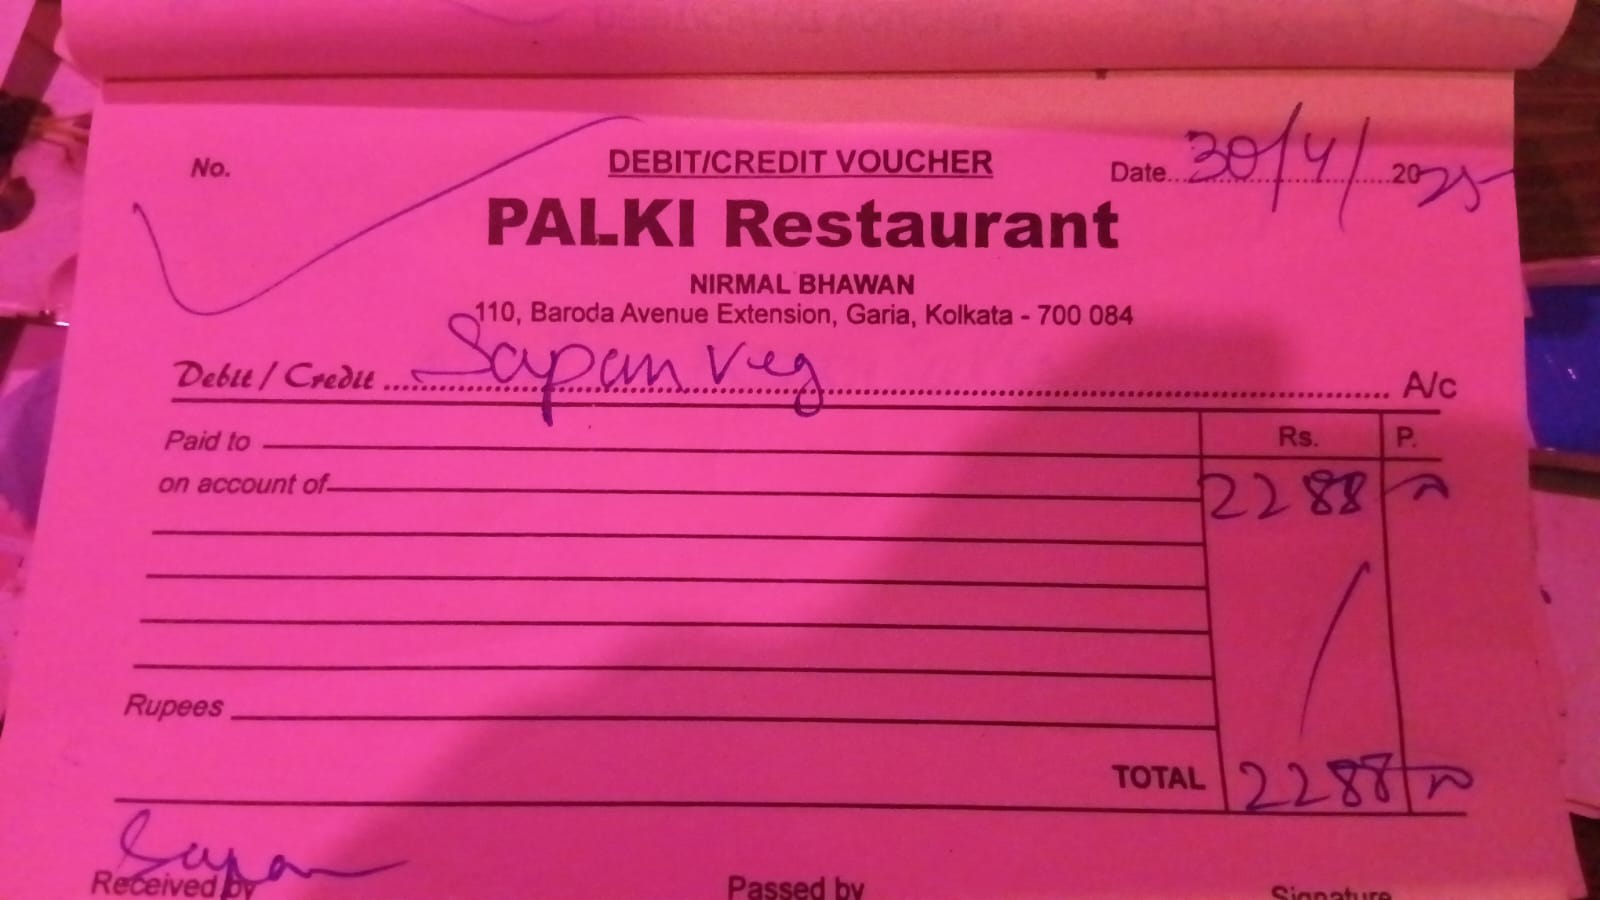 No. DEBIT/CREDIT VOUCHER Date 30/4/ 2025
PALKI Restaurant
NIRMAL BHAWAN
110, Baroda Avenue Extension, Garia, Kolkata - 700 084
Debit / Credit Sapan Veg A/c
Paid to Rs. P.
on account of 2288
Rupees
TOTAL 2288
Sapan
Received by Passed by Signature